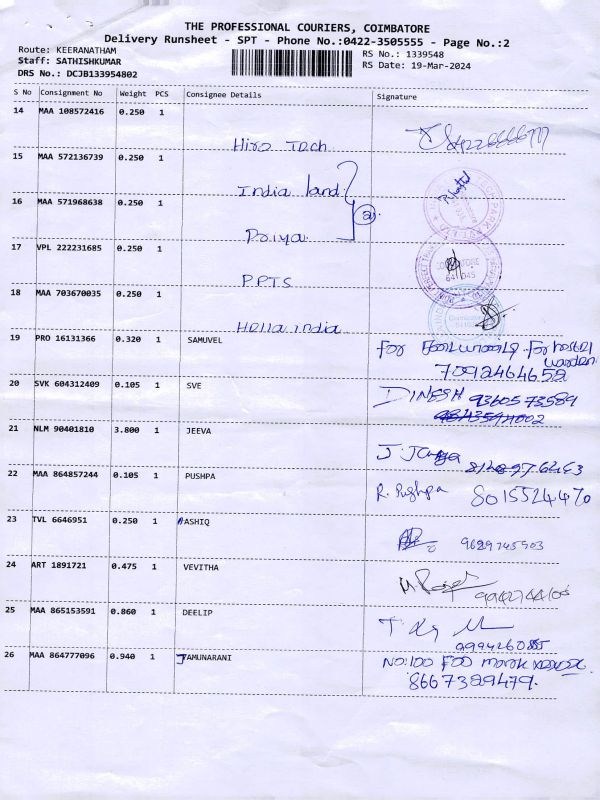 THE PROFESSIONAL COURIERS, COIMBATORE
Delivery Runsheet - SPT - Phone No.:0422-3505555 - Page No.:2
Route: KEERANATHAM
Staff: SATHISHKUMAR
DRS No.: DCJB133954802
RS No.: 1339548
RS Date: 19-Mar-2024
S No Consignment No Weight PCS Consignee Details Signature
14 MAA 108572416 0.250 1 Hiro Tech
15 MAA 572136739 0.250 1 India land
16 MAA 571968638 0.250 1 Priya
2
17 VPL 222231685 0.250 1 P.P.T.S
18 MAA 703670035 0.250 1 Hella india
19 PRO 16131366 0.320 1 SAMUVEL
For For hostel
warden
7092464652
20 SVK 604312409 0.105 1 SVE DINESH 9360573589
21 NLM 90401810 3.800 1 JEEVA
22 MAA 864857244 0.105 1 PUSHPA R. Pushpa 8015524470
23 TVL 6646951 0.250 1 AASHIQ 9629745903
24 ART 1891721 0.475 1 VEVITHA
25 MAA 865153591 0.860 1 DEELIP
26 MAA 864777096 0.940 1 JAMUNARANI No:100
8667329479.